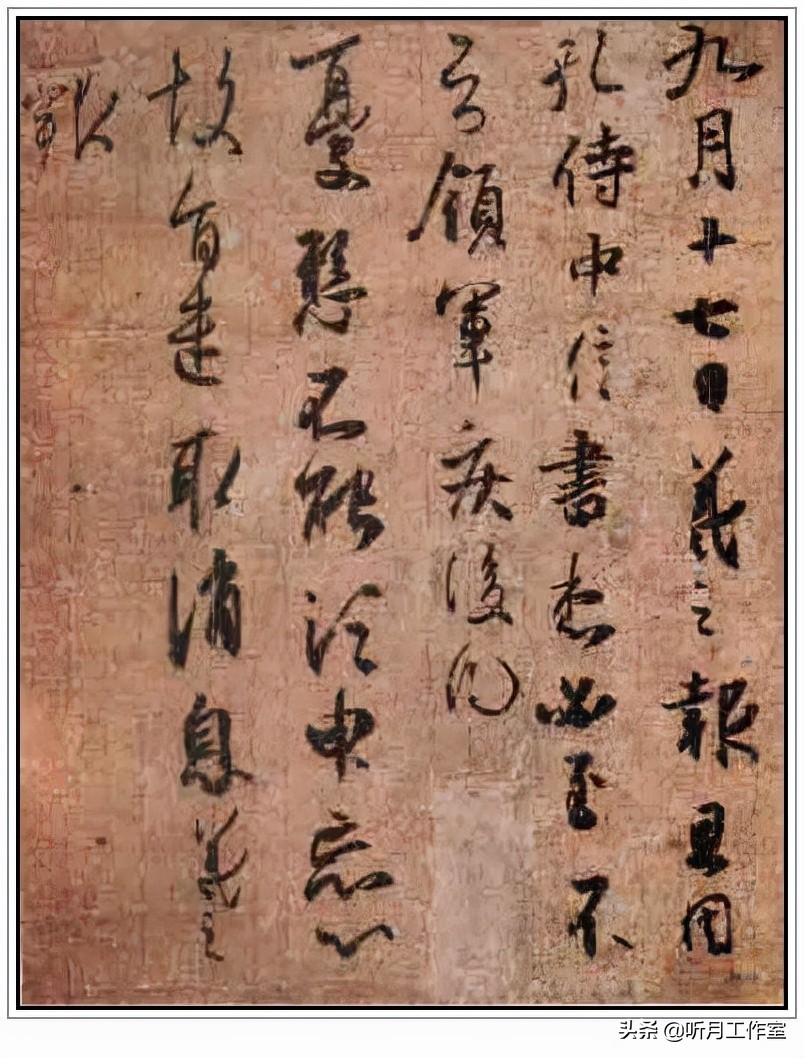 九月十七日羲之報且因
孔侍中信書想必至不
知領軍疾後問
憂懸不能須臾忘心
故旨遣取消息羲之
報
头条 @听月工作室